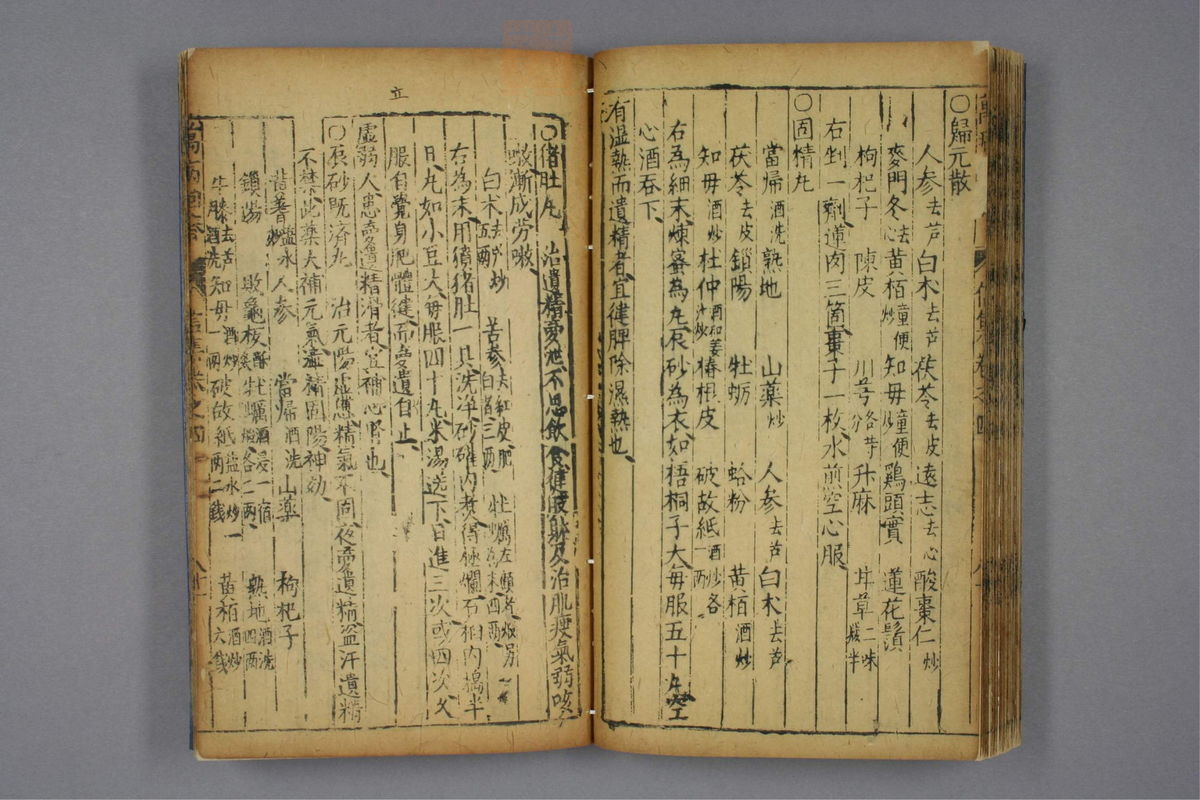 ○歸元散
人參去芦 白朮去芦 茯苓去皮 遠志去心 酸棗仁炒
麥門冬去心 黄栢童便炒 知毋童便炒 鷄頭實 蓮花鬚
枸杞子 陳皮 川芎各等分 升麻 甘草二味減半
右剉一劑蓮肉三箇棗子一枚水煎空心服
○固精丸
當帰酒洗 熟地 山藥炒 人參去芦 白朮去芦
茯苓去皮 鎖陽 牡蛎 蛤粉 黄栢酒炒
知毋酒炒 杜仲酒和姜汁炒 椿根皮 破故紙酒炒各一两
右為細末煉蜜為丸辰砂為衣如梧桐子大每服五十丸空
心酒吞下
有湿熱而遺精者宜健脾除濕熱也
○猪肚丸 治遺精夢泄不思飲食健肢躰及治肌瘦氣弱咳
嗽漸成劳嗽
白朮去芦炒五两 苦参去紅皮肥白者三两 牡蠣左顧者煅另炒為末四两
右為末用獖猪肚一具洗净砂確内煮得極爛石臼内搗半
日丸如小豆大每服四十丸米湯送下日進三次或四次久
服自覺身肥體健而夢遺自止
虛弱人患夢遺精滑者宜補心腎也
○辰砂既济丸 治元陽虛憊精氣不固夜夢遺精盗汗遺精
不禁此藥大補元氣濇精固陽神効
黄蓍塩水炒 人參 當帰酒洗 山藥 枸杞子
鎖陽 敗龜板酥炙 牡蠣酒浸一宿煅各二两 熟地酒洗四两
牛膝去芦酒洗 知毋酒炒一两 破故紙塩水炒一两二銭 黄栢酒炒六銭